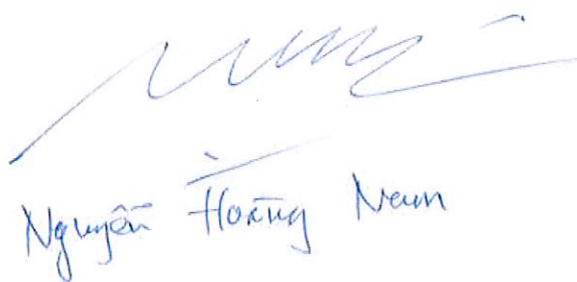 Nguyễn Hoàng Nam